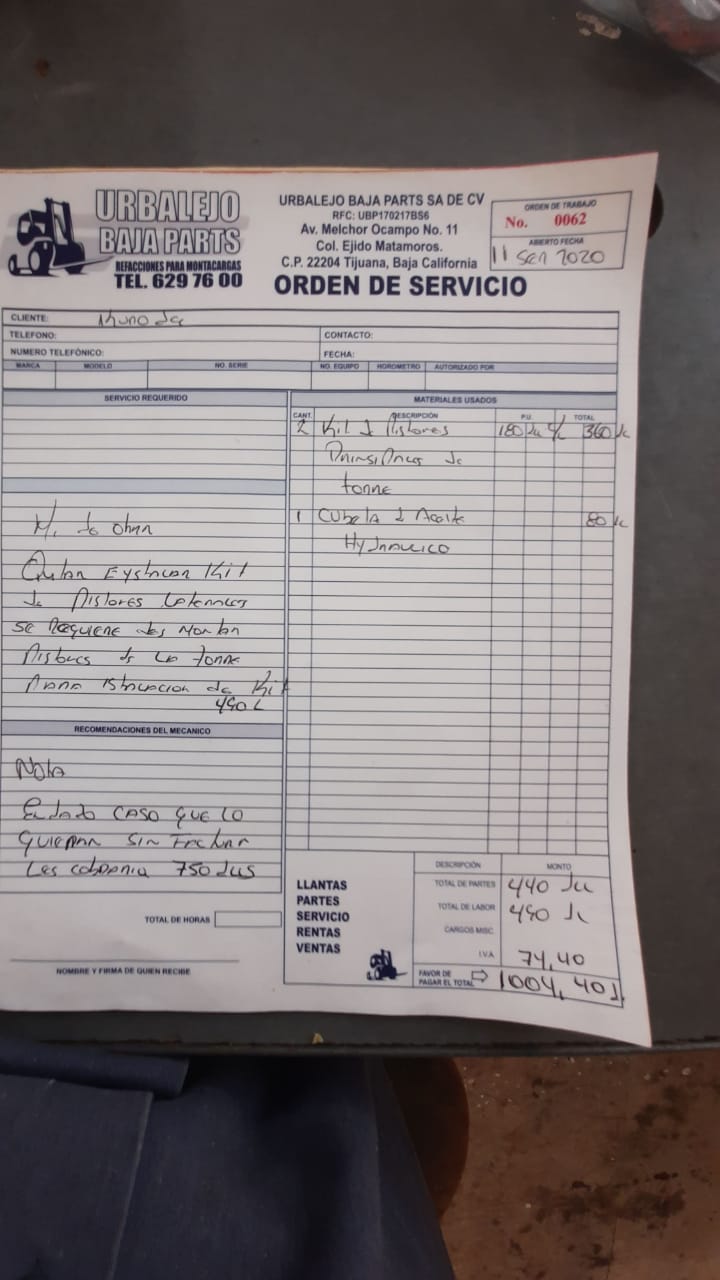 URBALEJO
BAJA PARTS
REFACCIONES PARA MONTACARGAS
TEL. 629 76 00
URBALEJO BAJA PARTS SA DE CV
RFC: UBP170217BS6
Av. Melchor Ocampo No. 11
Col. Ejido Matamoros.
C.P. 22204 Tijuana, Baja California
ORDEN DE SERVICIO
ORDEN DE TRABAJO
No. 0062
ABIERTO FECHA
11 2020
CLIENTE:
TELEFONO: CONTACTO:
NUMERO TELEFÓNICO: FECHA:
MARCA MODELO NO. SERIE NO. EQUIPO HOROMETRO AUTORIZADO POR
SERVICIO REQUERIDO
M. de obra
Kit
de Pistones
se Requiere
de la torre
de Kit
490
RECOMENDACIONES DEL MECANICO
Nota
En dado CASO QUE LO
QUIERAN SIN Facturar
Les cobraria 750
TOTAL DE HORAS
NOMBRE Y FIRMA DE QUIEN RECIBE
MATERIALES USADOS
CANT. DESCRIPCIÓN P.U. TOTAL
2 Kit d Pistones 180 c/ 360
de
torre
1 Cubeta d Aceite 80
Hydraulico
LLANTAS
PARTES
SERVICIO
RENTAS
VENTAS
DESCRIPCIÓN MONTO
TOTAL DE PARTES 440
TOTAL DE LABOR 490
CARGOS MISC
IVA 74,40
FAVOR DE PAGAR EL TOTAL 1004,40